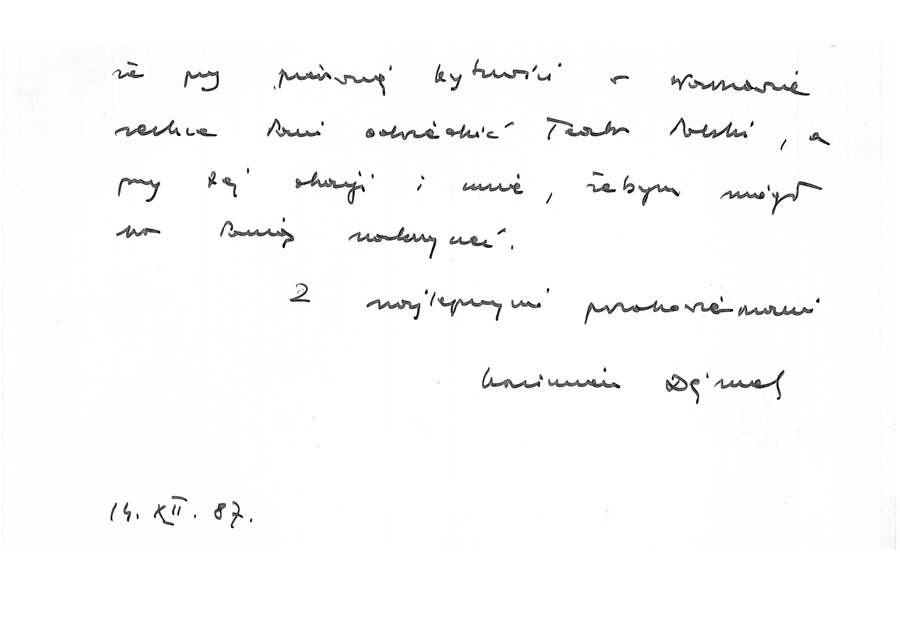 że przy pierwszej bytności w Warszawie
zechce Pani odwiedzić Teatr Polski, a
przy tej okazji i mnie, żebym mógł
na Panią nakrzyczeć.
Z najlepszymi pozdrowieniami
Kazimierz Dejmek
14. XII. 87.